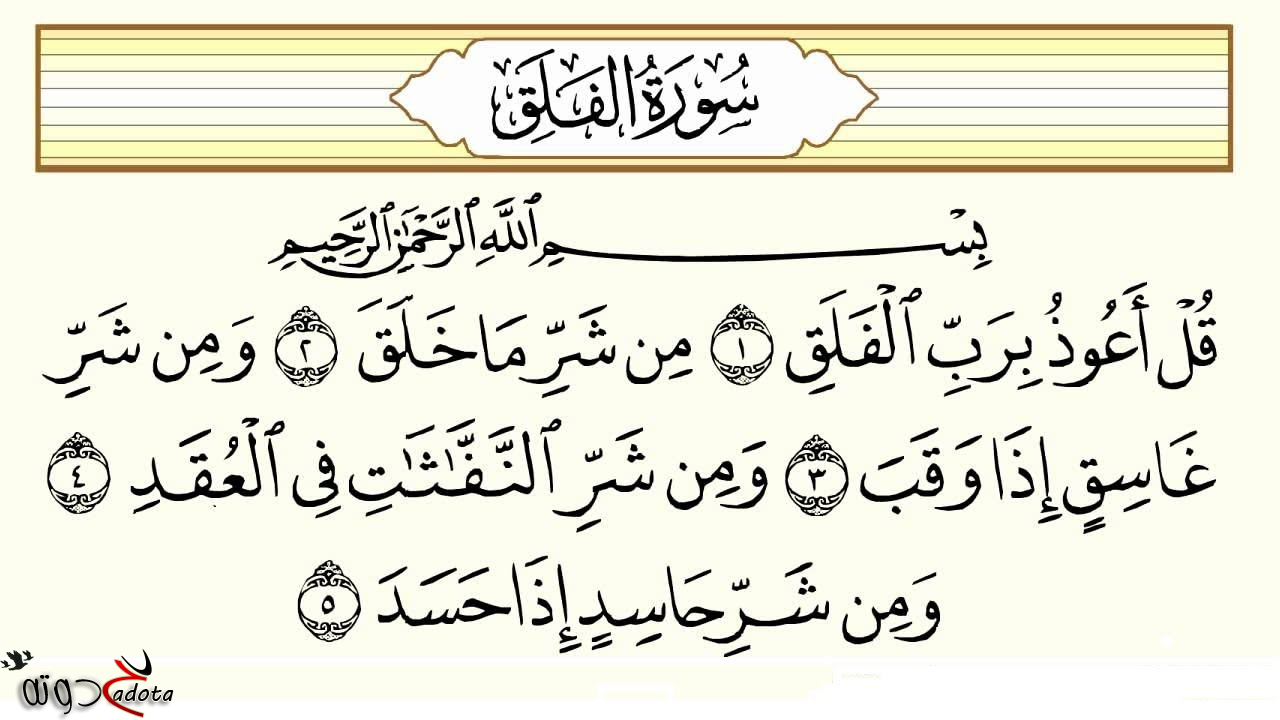 سُورَةُ الفَلَقِ
بِسْمِ ٱللَّهِ ٱلرَّحْمَٰنِ ٱلرَّحِيمِ
قُلْ أَعُوذُ بِرَبِّ ٱلْفَلَقِ ١ مِن شَرِّ مَا خَلَقَ ٢ وَمِن شَرِّ
غَاسِقٍ إِذَا وَقَبَ ٣ وَمِن شَرِّ ٱلنَّفَّٰثَٰتِ فِى ٱلْعُقَدِ ٤
وَمِن شَرِّ حَاسِدٍ إِذَا حَسَدَ ٥
حدوته
7adota